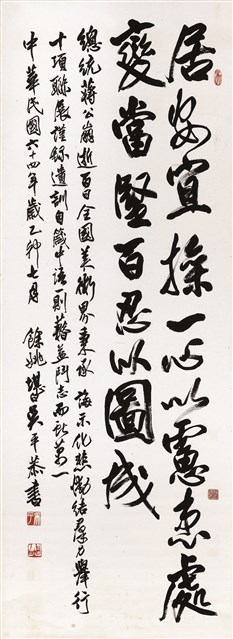 居安宜操一心以慮患處
變當堅百忍以圖成
總統蔣公崩逝百日全國美術界秉承 誨示化悲慟結羣力舉行
十項聯展謹錄遺訓自箴中語一則藉益鬥志而式萬一
中華民國六十四年歲乙卯七月 餘姚堪白吳平恭書